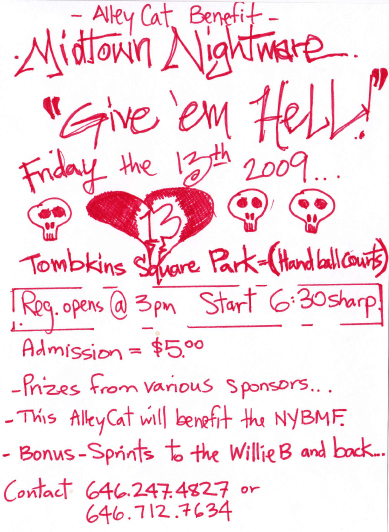 - Alley Cat Benefit -
Midtown Nightmare.
"Give 'em Hell!"
Friday the 13th 2009...
13
Tombkins Square Park = (Handball courts)
Reg. opens @ 3pm Start 6:30 sharp!
Admission = $5.00
- Prizes from various sponsors...
- This AlleyCat will benefit the NYBMF.
- Bonus - Sprints to the Willie B and back...
Contact 646.247.4827 or
646.712.7634